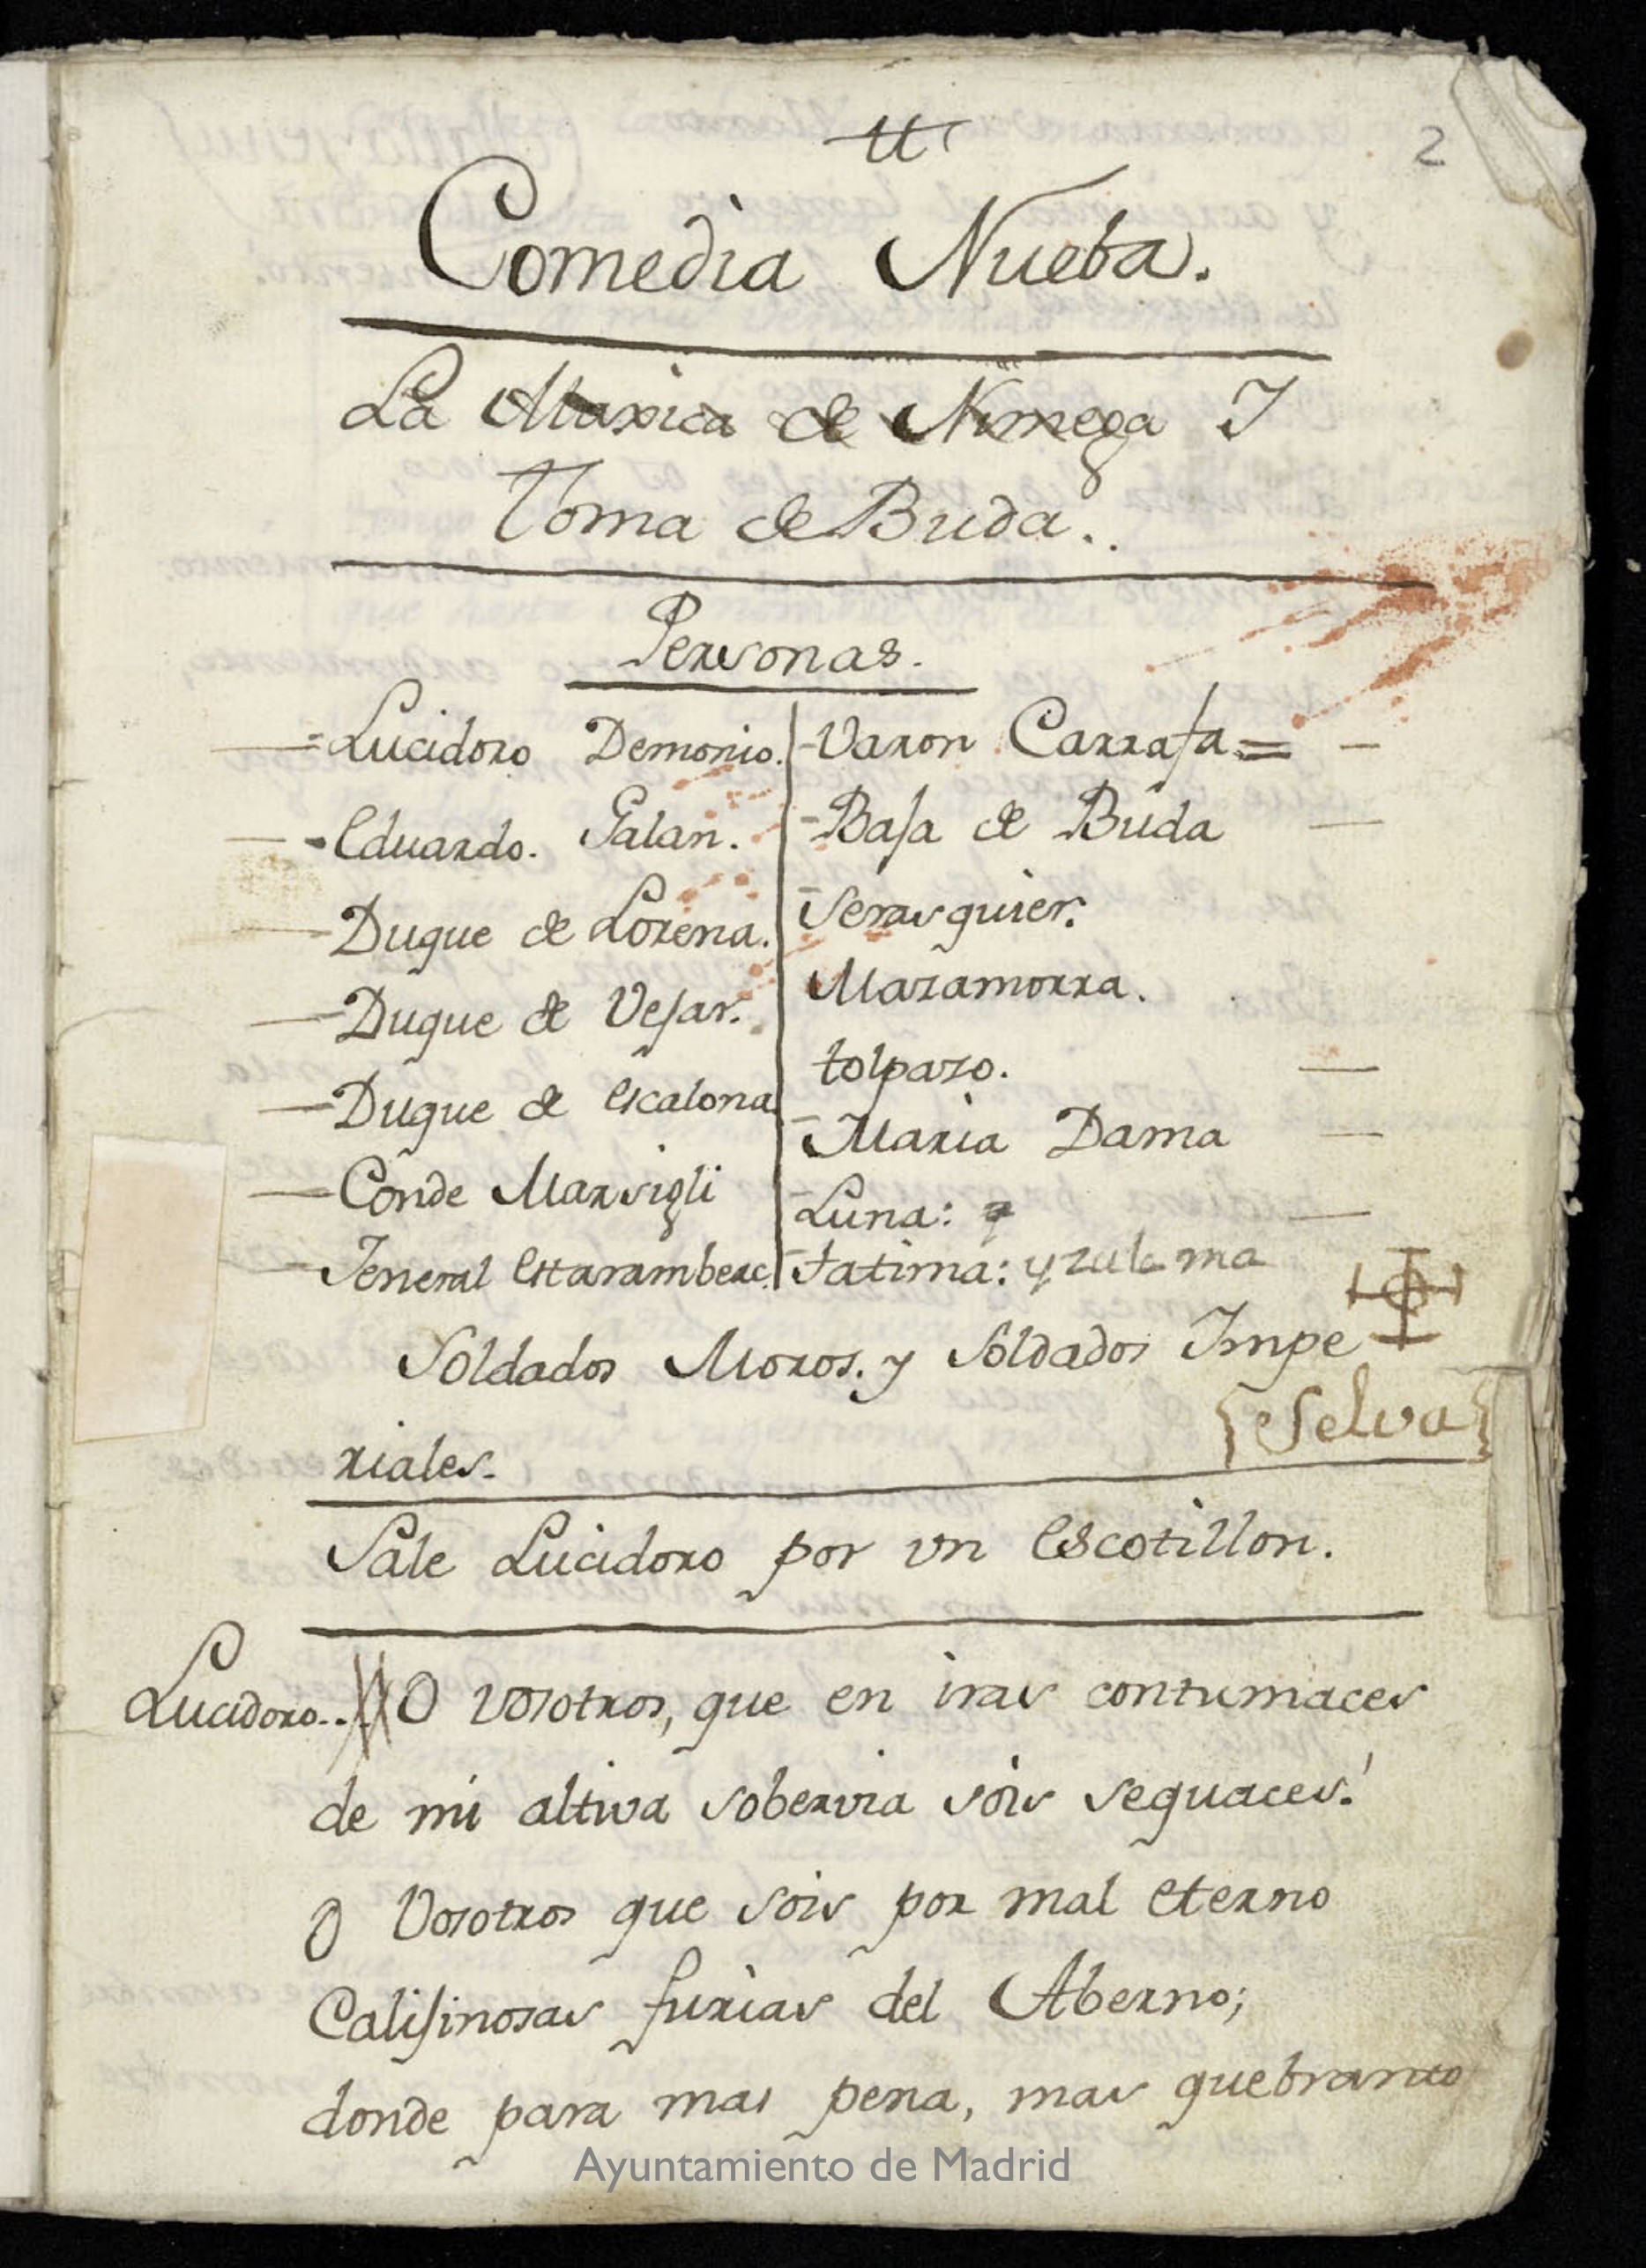 2
Comedia Nueba.
La Maxica de Nimega Y
Toma de Buda.
Personas.
Lucidoro Demonio.
Eduardo. Galan.
Duque de Lorena.
Duque de Vejar.
Duque de Escalona
Conde Marsigli
Jeneral Estarambeac.
Varon Carrafa =
Baja de Buda
Serasquier.
Mazamorra.
tolpazo.
Maria Dama
Luna: y
Fatima: y zulema
Soldados Moros. y Soldados Impe
{Selva}
riales.
Sale Lucidoro por vn Escotillon.
Lucidoro.. O vosotros, que en iras contumaces
de mi altiva sobervia sois sequaces!
O Vosotros que sois por mal eterno
Calijinosas furias del Aberno;
donde para mas pena, mas quebranto
Ayuntamiento de Madrid